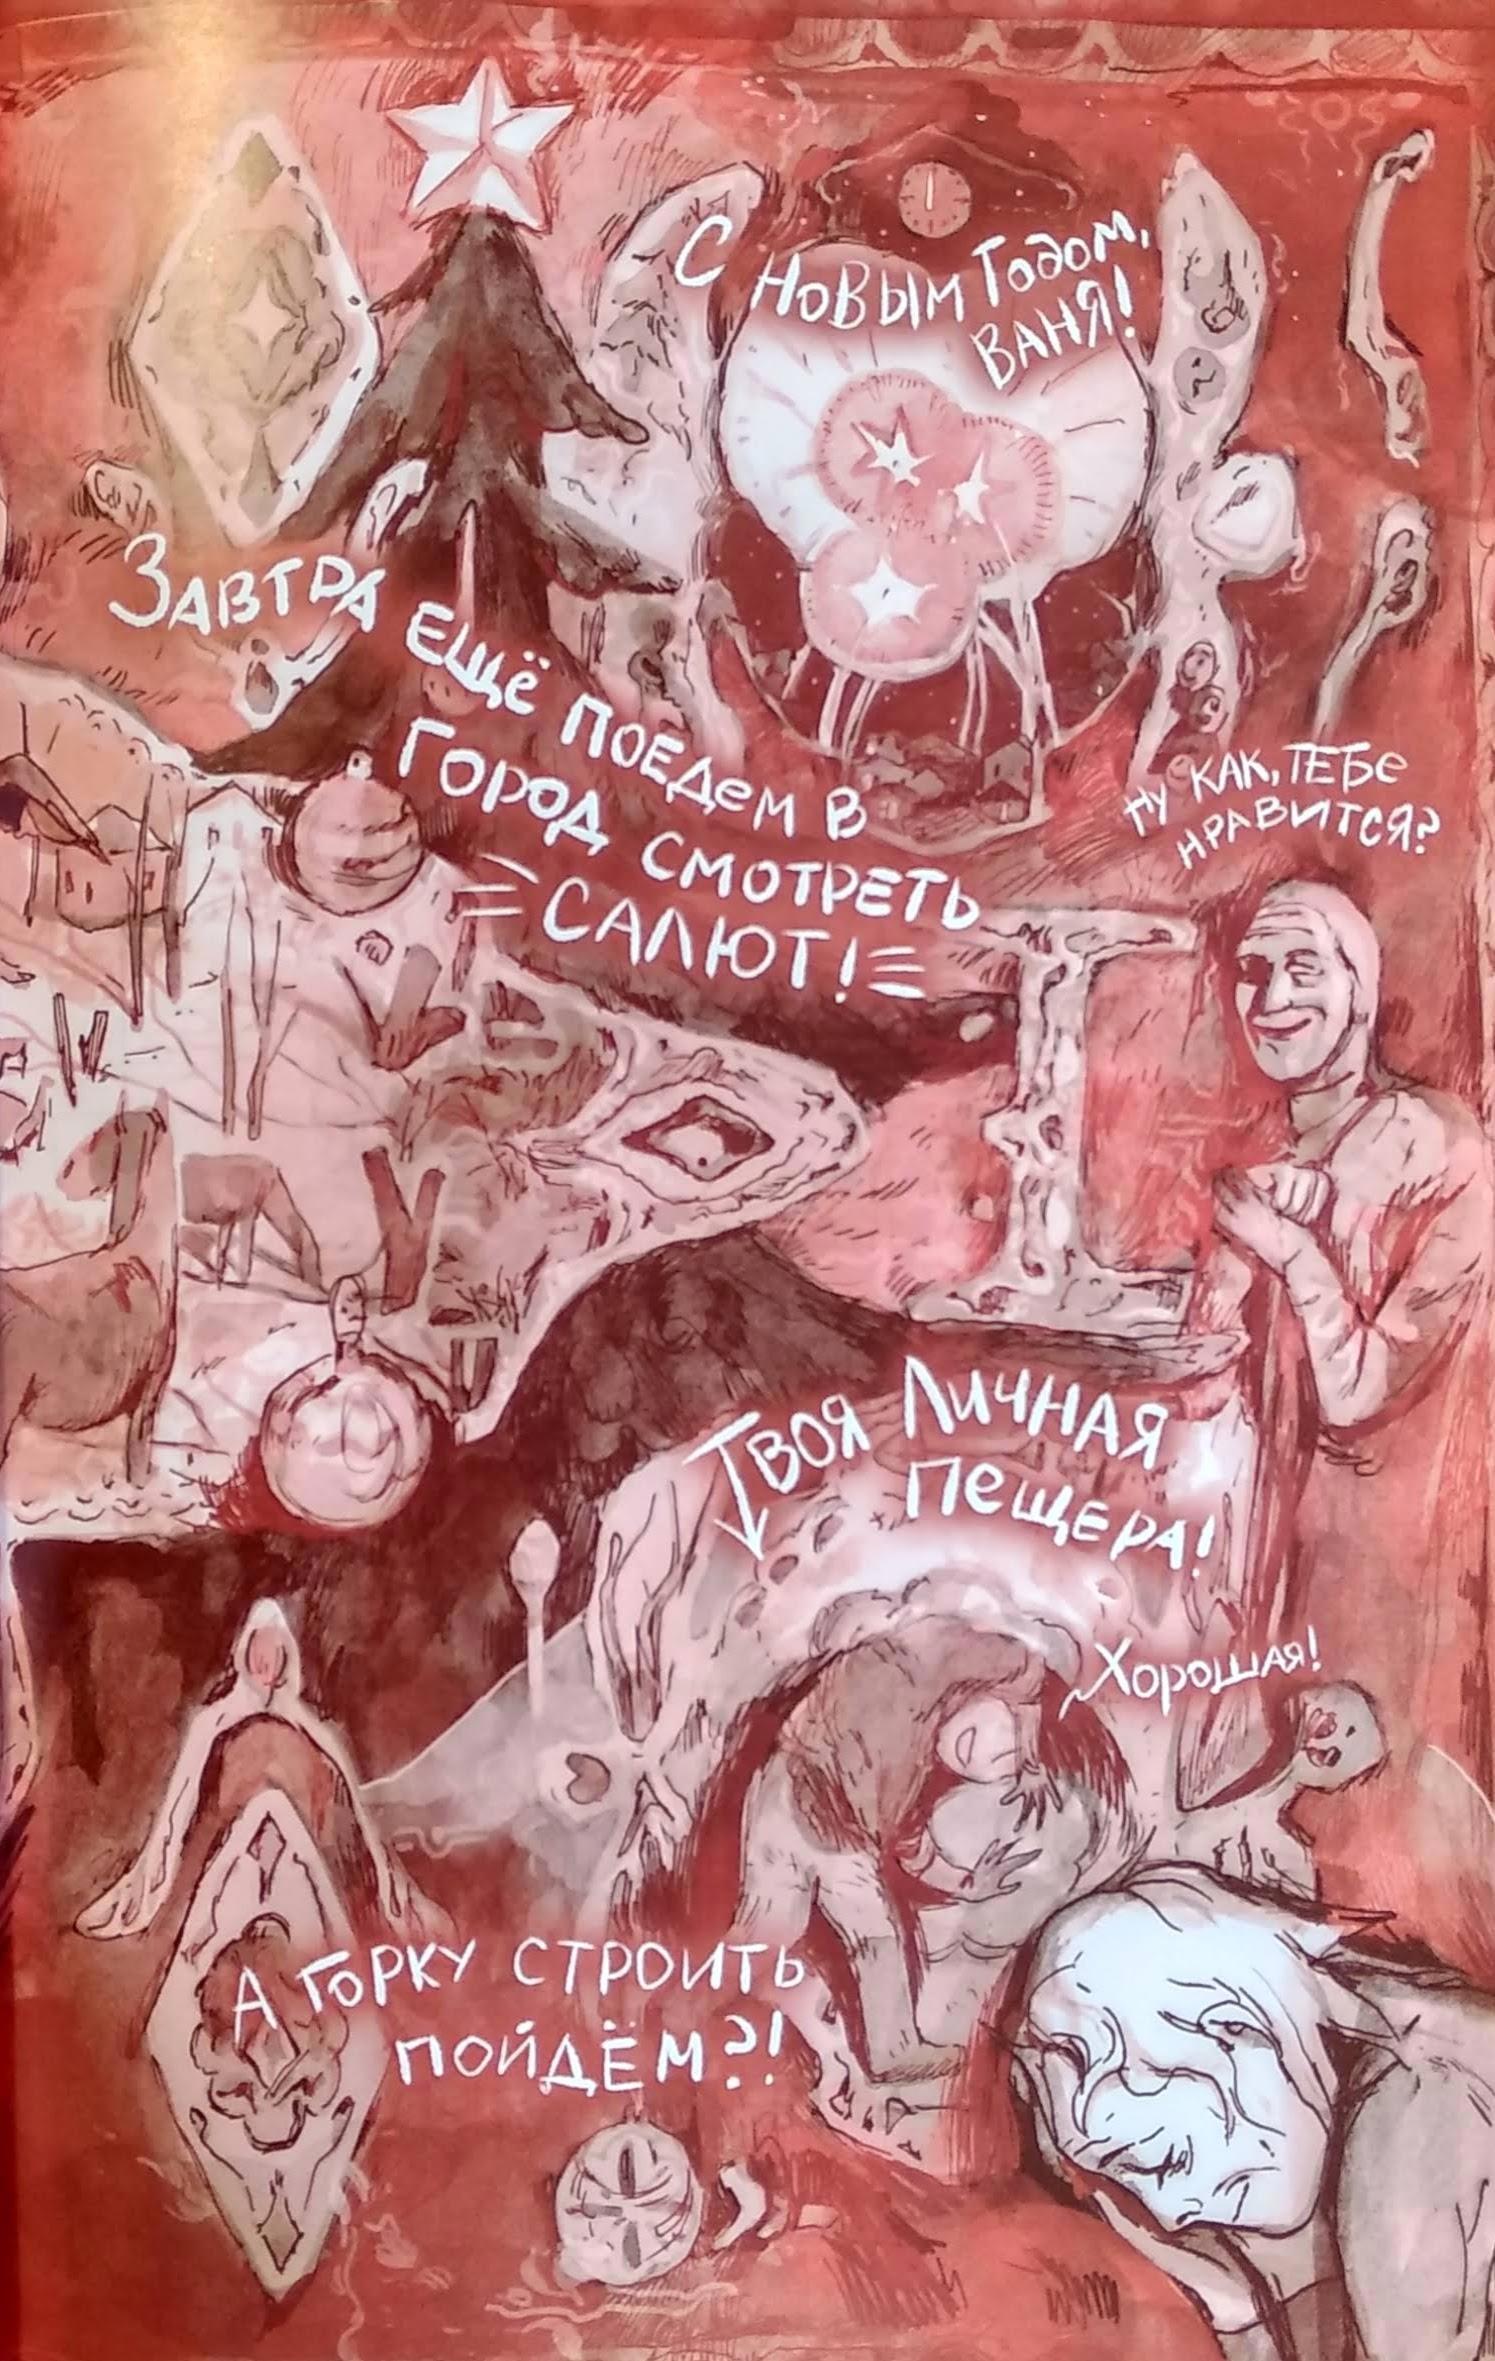 С НОВЫМ ГОДОМ,
ВАНЯ!
ЗАВТРА ЕЩЁ ПОЕДЕМ В
ГОРОД СМОТРЕТЬ
САЛЮТ!
НУ КАК, ТЕБЕ
НРАВИТСЯ?
ТВОЯ ЛИЧНАЯ
ПЕЩЕРА!
ХОРОШАЯ!
А ГОРКУ СТРОИТЬ
ПОЙДЁМ?!